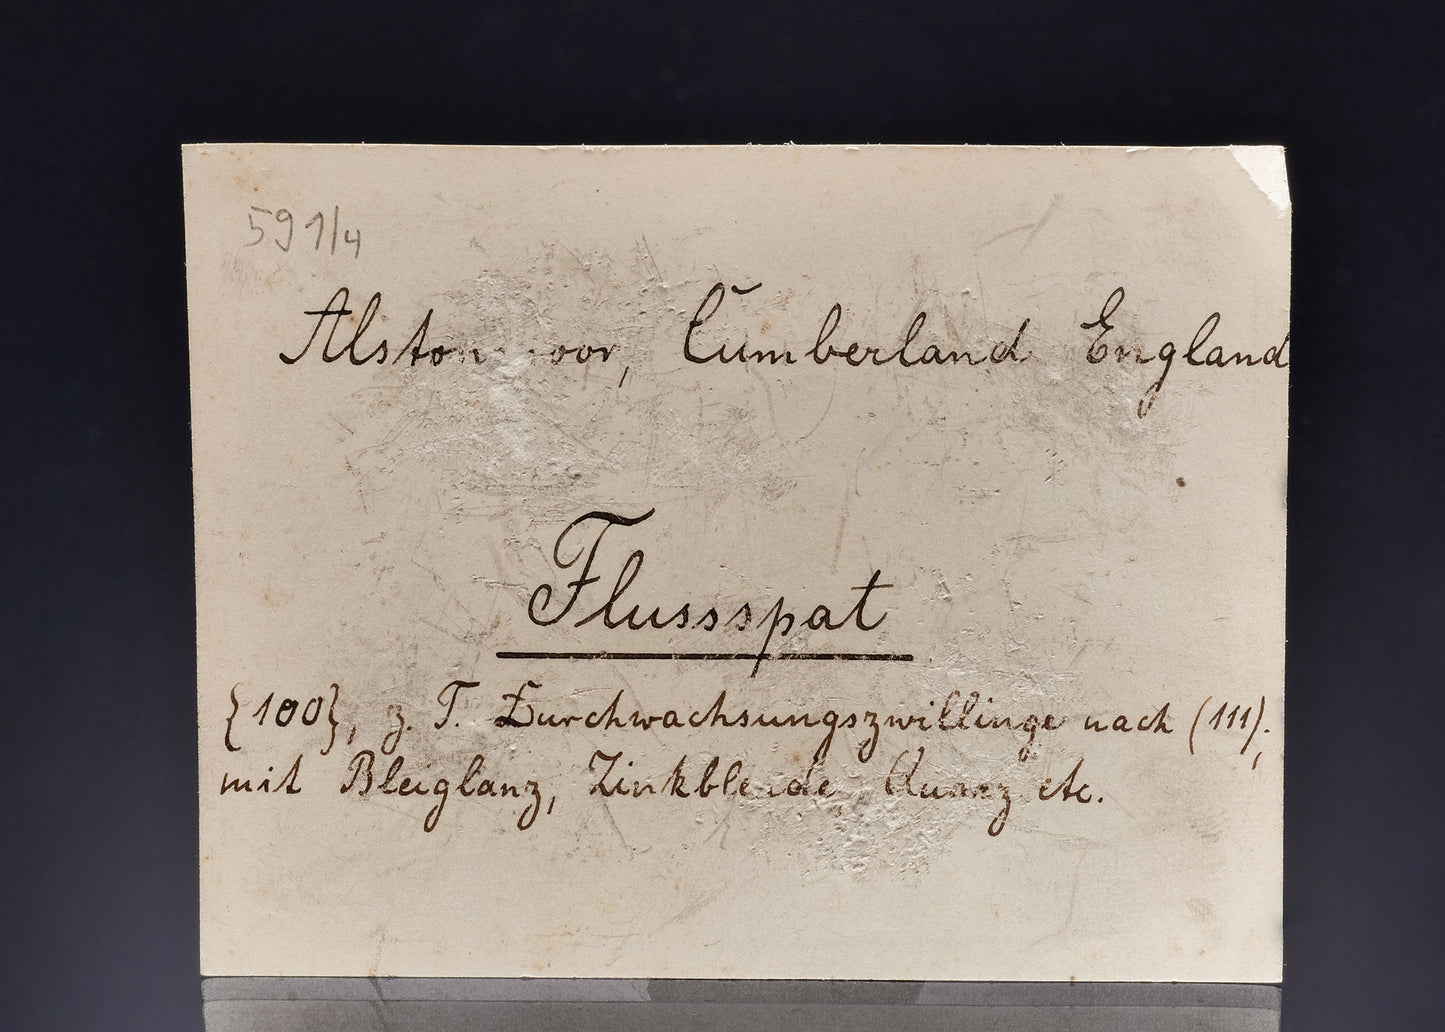 59 1/4
Alston moor, Cumberland England
Flussspat
{100}, z. T. Durchwachsungszwillinge nach (111);
mit Bleiglanz, Zinkblende, Quarz etc.